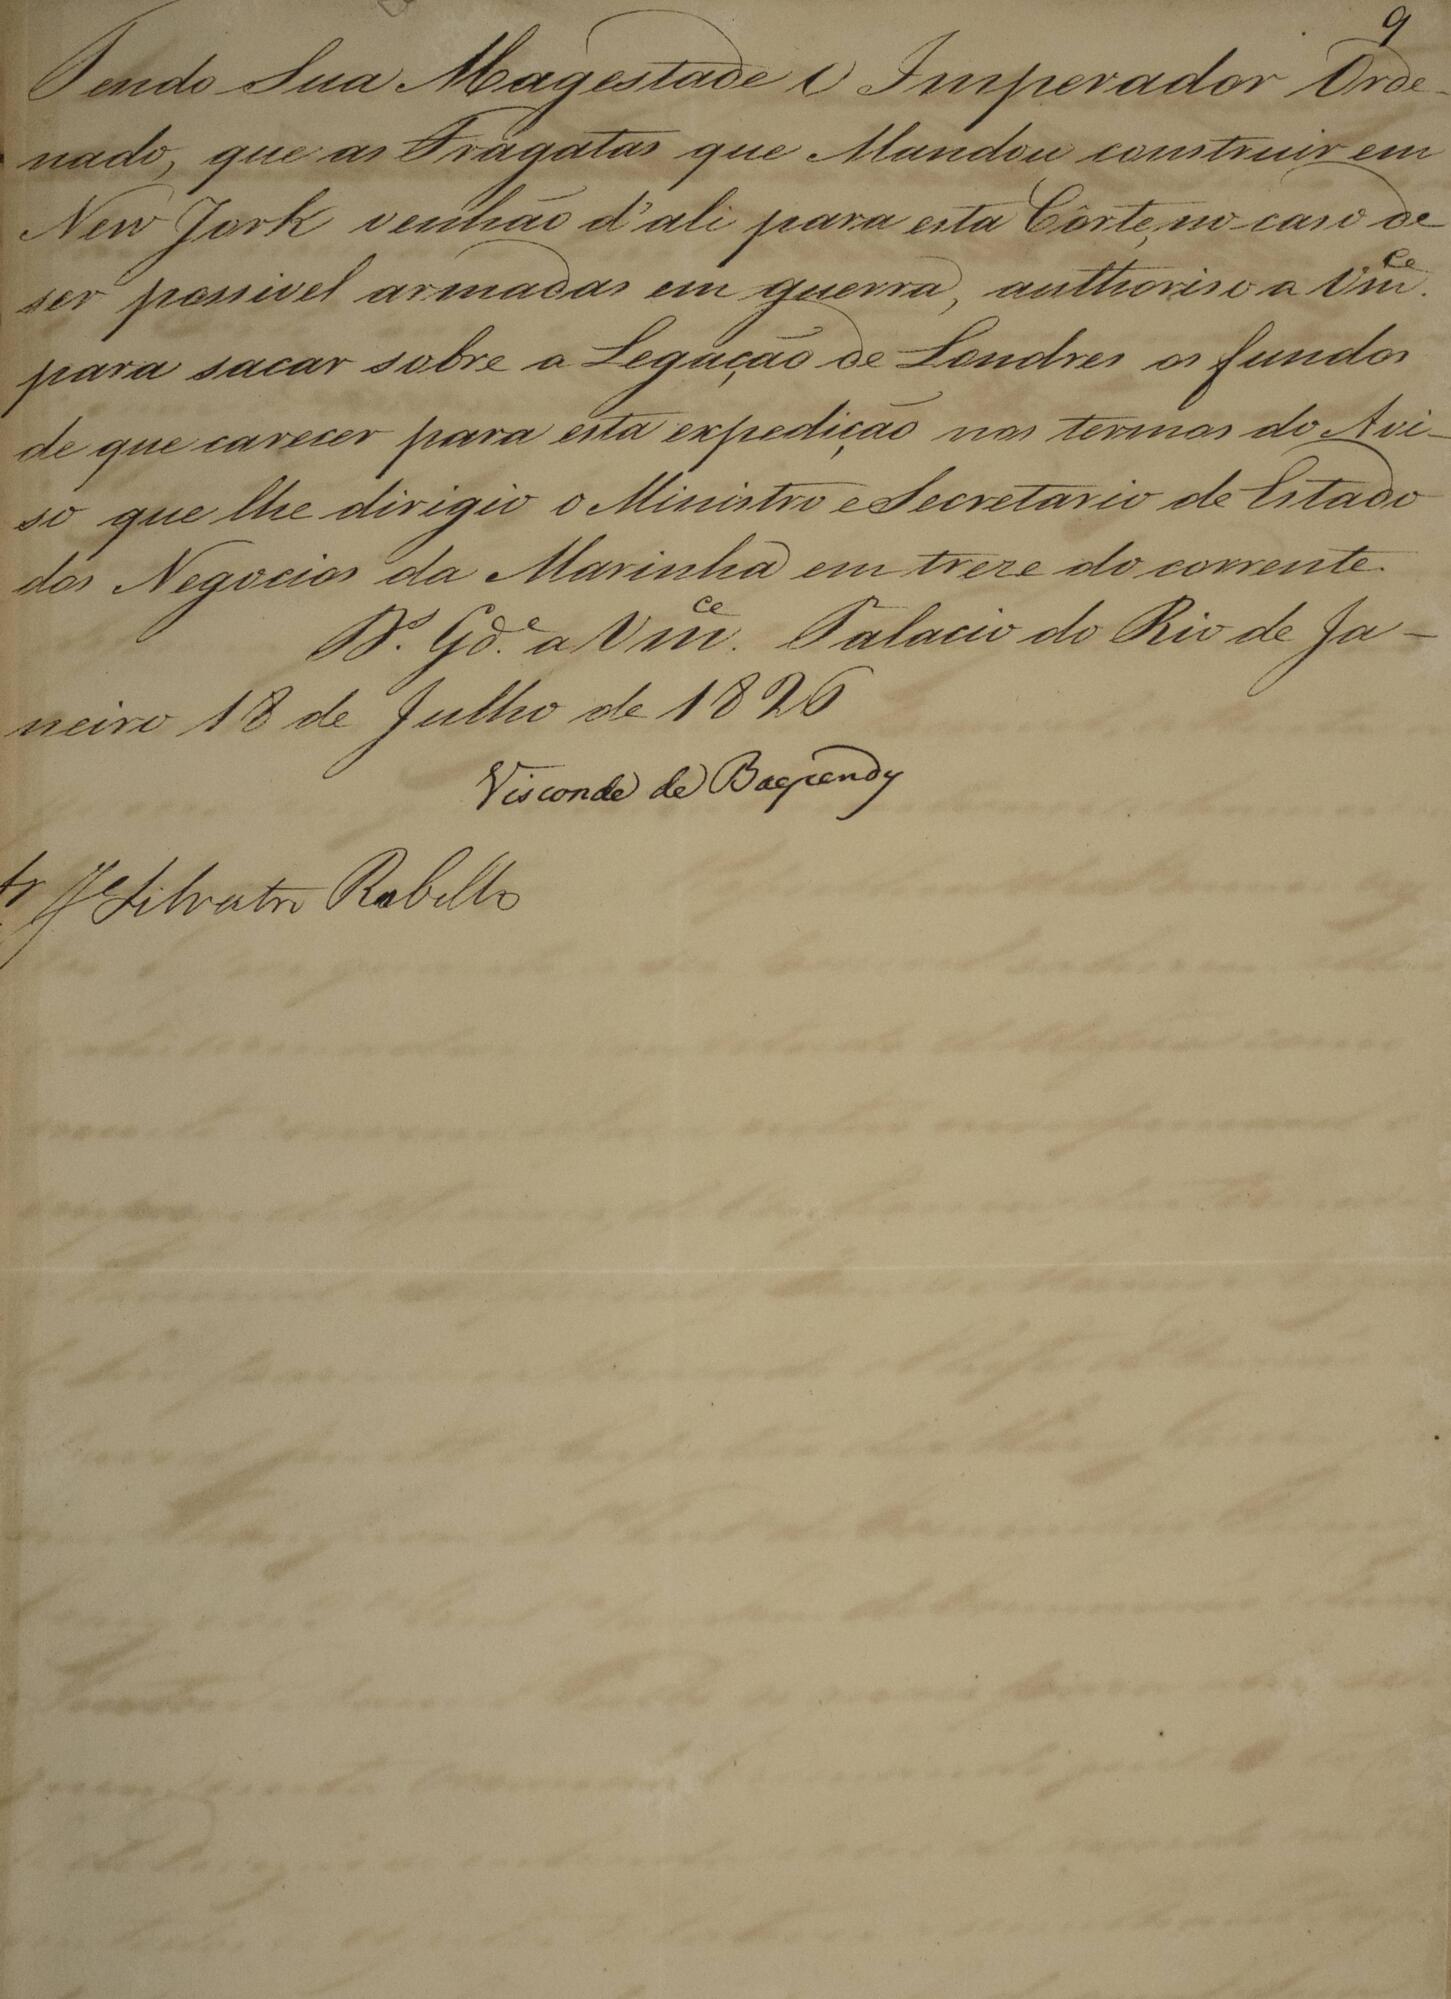 9
Tendo Sua Magestade O Imperador Orde-
nado, que as Fragatas que Mandou construir em
New York venhão d'ali para esta Côrte, no caso de
ser possivel armadas em guerra, authoriso a Vm.ce
para sacar sobre a Legação de Londres os fundos
de que carecer para esta expedição nos termos do Avi-
so que lhe dirigio o Ministro e Secretario de Estado
dos Negocios da Marinha em treze do corrente.
D.s G.de a Vm.ce Palacio do Rio de Ja-
neiro 18 de Julho de 1826
Visconde de Baependy
Sr Je Silvestre Rebello